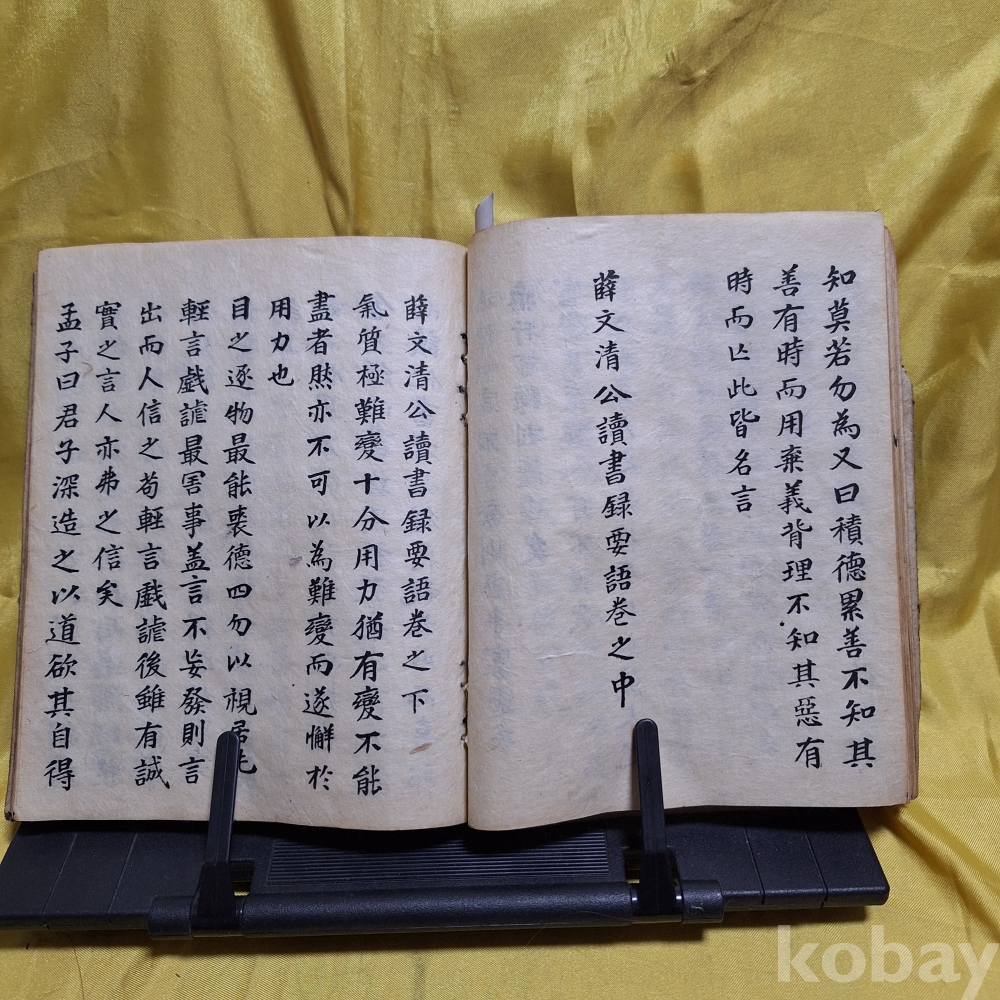 知莫若勿為又曰積德累善不知其
善有時而用棄義背理不知其惡有
時而亡此皆名言
薛文清公讀書録要語巻之中
薛文清公讀書録要語巻之下
氣質極難變十分用力猶有變不能
盡者然亦不可以為難變而遂懈於
用力也
目之逐物最能喪德四勿以視居先
輕言戲謔最害事盖言不妄發則言
出而人信之苟輕言戲謔後雖有誠
實之言人亦弗之信矣
孟子曰君子深造之以道欲其自得
kobay